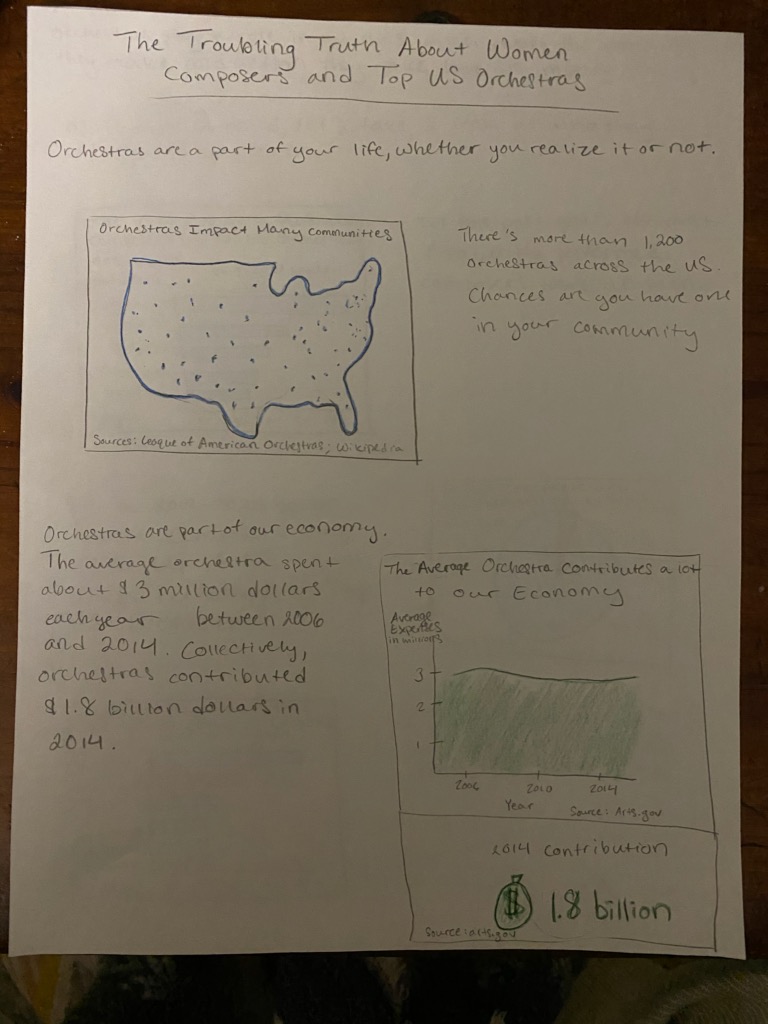 The Troubling Truth About Women
Composers and Top US Orchestras
Orchestras are a part of your life, whether you realize it or not.
Orchestras Impact Many Communities
Sources: League of American Orchestras; Wikipedia
There's more than 1,200
orchestras across the US.
Chances are you have one
in your community
Orchestras are part of our economy.
The average orchestra spent
about $3 million dollars
each year between 2006
and 2014. Collectively,
orchestras contributed
$1.8 billion dollars in
2014.
The Average Orchestra Contributes a lot
to our Economy
Average
Expenses
in millions
3
2
1
2006 2010 2014
Year
Source: Arts.gov
2014 contribution
$ 1.8 billion
Source: arts.gov